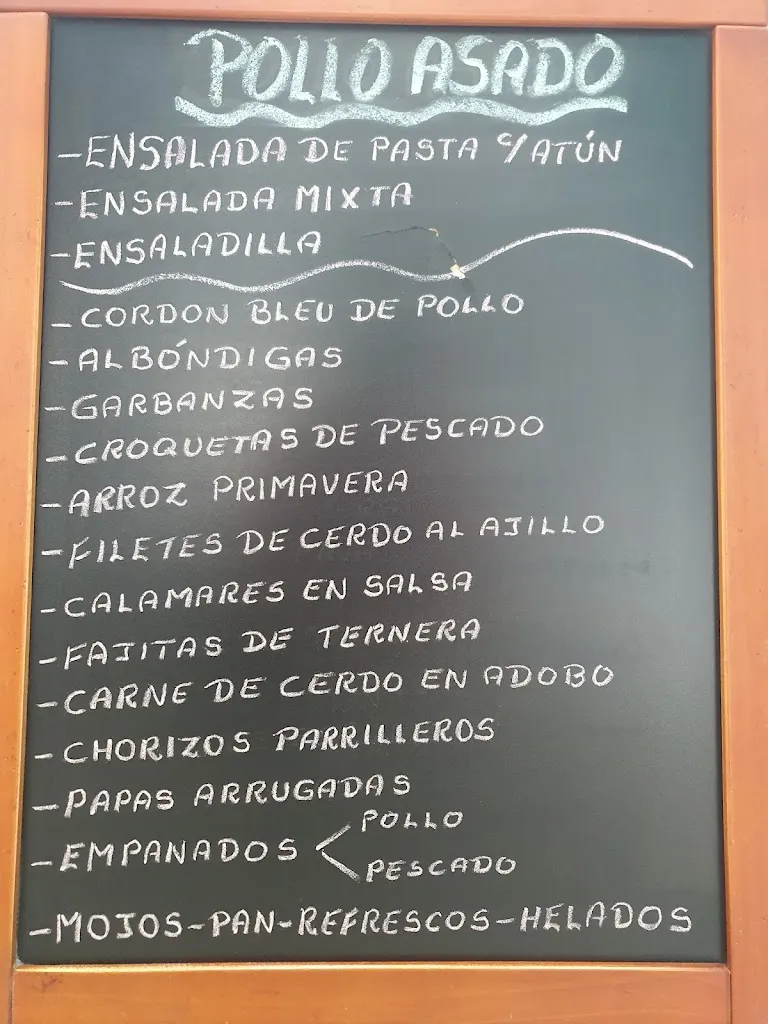 POLLO ASADO
-ENSALADA DE PASTA C/ATÚN
-ENSALADA MIXTA
-ENSALADILLA
-CORDON BLEU DE POLLO
-ALBÓNDIGAS
-GARBANZAS
-CROQUETAS DE PESCADO
-ARROZ PRIMAVERA
-FILETES DE CERDO AL AJILLO
-CALAMARES EN SALSA
-FAJITAS DE TERNERA
-CARNE DE CERDO EN ADOBO
-CHORIZOS PARRILLEROS
-PAPAS ARRUGADAS
-EMPANADOS < POLLO
PESCADO
-MOJOS-PAN-REFRESCOS-HELADOS